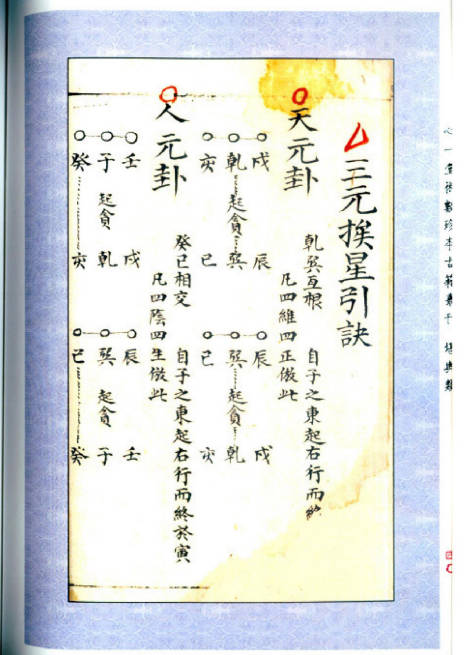 三元挨星引訣
天元卦
乾巽互根　自子之東起右行而終
凡四維四正倣此
戌　辰　辰　戌
乾起貪巽　巽起貪乾
亥　巳　巳　亥
人元卦
癸巳相交　自子之東起右行而終於寅
凡四陰四生倣此
壬　戌　辰　壬
子起貪乾　巽起貪子
癸　亥　巳　癸
心一堂術數珍本古籍叢刊　堪輿類